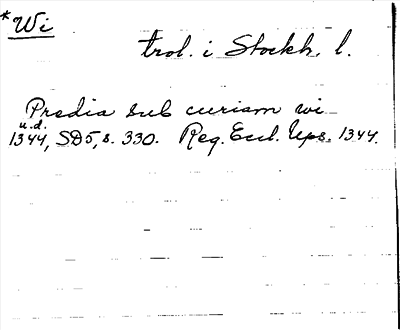 *Wi
trol. i Stockh. l.
Predia sub curiam wi
u.d.
1344, SD5, s. 330. Reg. Eccl. Ups. 1344.